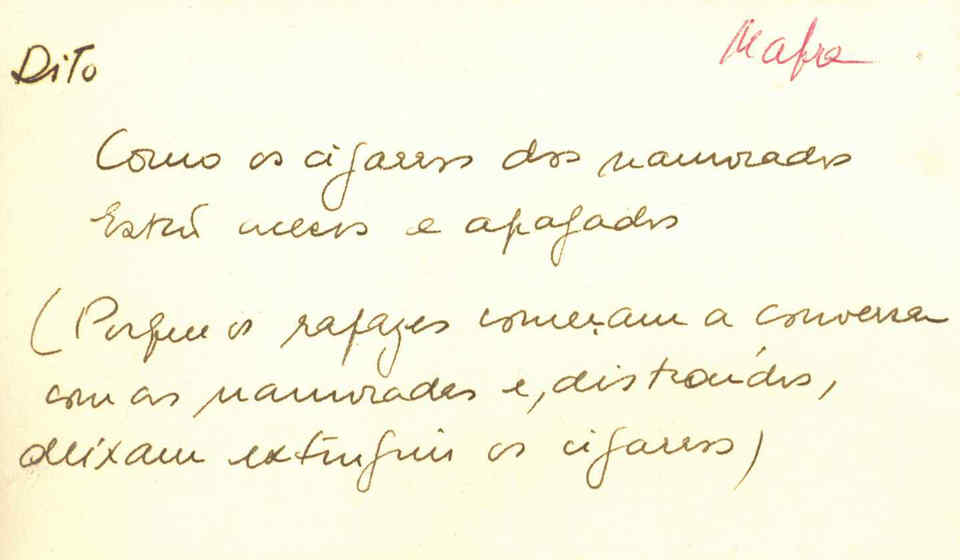 Dito
Mafra
Como os cigarros dos namorados
Estão acesos e apagados
(Porque os rapazes começam a conversar
com as namoradas e, distraídos,
deixam extinguir os cigarros)